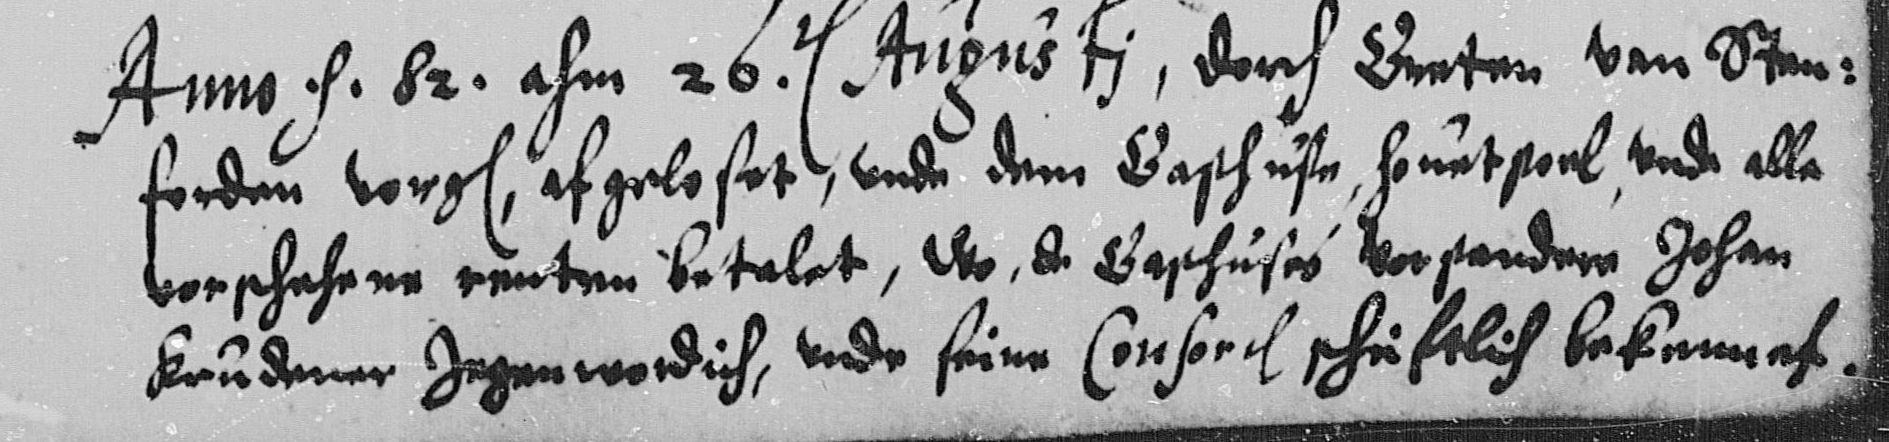 Anno .h. 82. ahm 26. Augusti, dorch Greten van Sten:
forden vorg, afgeloset, vnde dem Gasthuse, houetstoel, vnde alle
vorschehene renten betalet, Wo, de Gasthuses Vorstendere Johan
Krudener Jegenwordich, vnde seine Consort schriftlich bekennet.